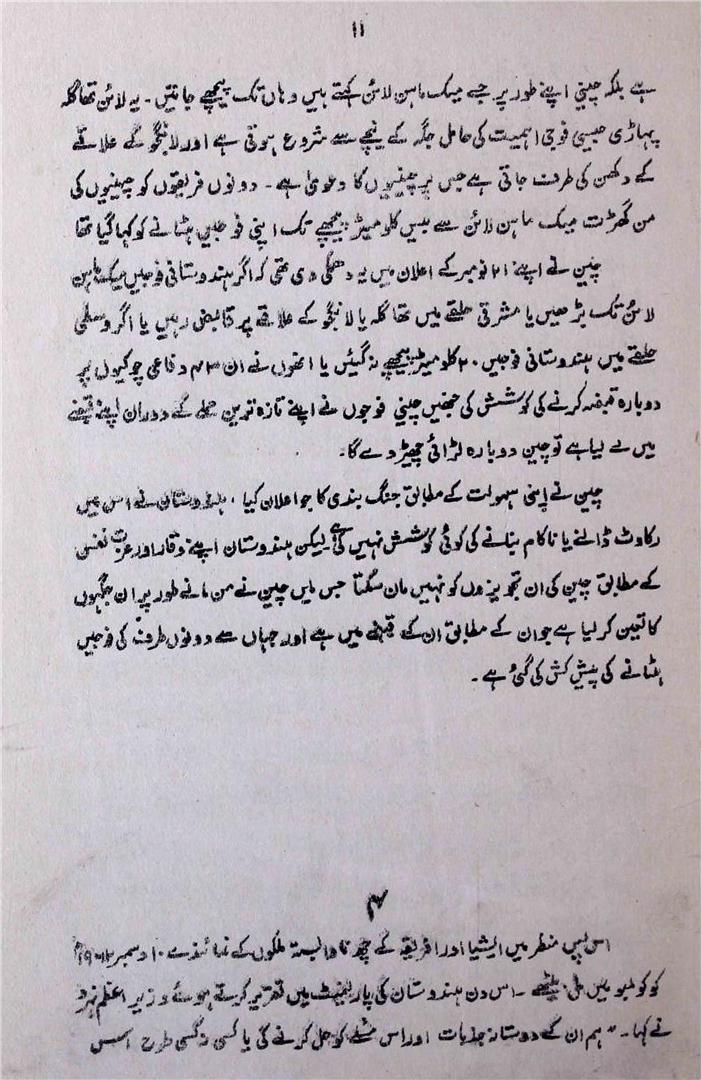 ۱۱
ہے بلکہ چینی اپنے طور پر جسے میک ماہن لائن کہتے ہیں وہاں تک پیچھے جائیں ۔ یہ لائن تھاگلہ
پہاڑی جیسی فوجی اہمیت کی حامل جگہ کے نیچے سے شروع ہوتی ہے اور لانگجو کے علاقے
کے دکھن کی طرف جاتی ہے جس پر چینیوں کا دعویٰ ہے ۔ دونوں فریقوں کو چینیوں کی
من گھڑت میک ماہن لائن سے بیس کلومیٹر پیچھے تک اپنی فوجیں ہٹانے کو کہا گیا تھا
چین نے اپنے ۲۱ نومبر کے اعلان میں یہ دھمکی دی تھی کہ اگر ہندوستانی فوجیں میک ماہن
لائن تک بڑھیں یا مشرقی حلقے میں تھاگلہ یا لانگجو کے علاقے پر قابض رہیں یا اگر وسطی
حلقے میں ہندوستانی فوجیں ۲۰ کلومیٹر پیچھے نہ گئیں یا انھوں نے ان ۴۳ دفاعی چوکیوں پر
دوبارہ قبضہ کرنے کی کوشش کی جنھیں چینی فوجوں نے اپنے تازہ ترین حملے کے دوران اپنے قبضے
میں لے لیا ہے تو چین دوبارہ لڑائی چھیڑ دے گا۔
چین نے اپنی سہولت کے مطابق جنگ بندی کا جو اعلان کیا ، ہندوستان نے اس میں
رکاوٹ ڈالنے یا ناکام بنانے کی کوئی کوشش نہیں کی ہے لیکن ہندوستان اپنے وقار اور عزت نفس
کے مطابق چین کی ان تجویزوں کو نہیں مان سکتا جس میں چین نے من مانے طور پر ان جگہوں
کا تعین کر لیا ہے جو ان کے مطابق ان کے قبضے میں ہے اور جہاں سے دونوں طرف کی فوجیں
ہٹانے کی پیش کش کی گئی ہے ۔
اس پس منظر میں ایشیا اور افریقہ کے چھ ناوابستہ ملکوں کے نمائندے ۱۰ دسمبر ۱۹۶۲ء
کو کولمبو میں مل بیٹھے ۔ اس دن ہندوستان کی پارلیمنٹ میں تقریر کرتے ہوئے وزیر اعظم نہرو
نے کہا ۔ "ہم ان کے دوستانہ جذبات اور اس مسئلے کو حل کرنے کی یا کسی نہ کسی طرح اسے